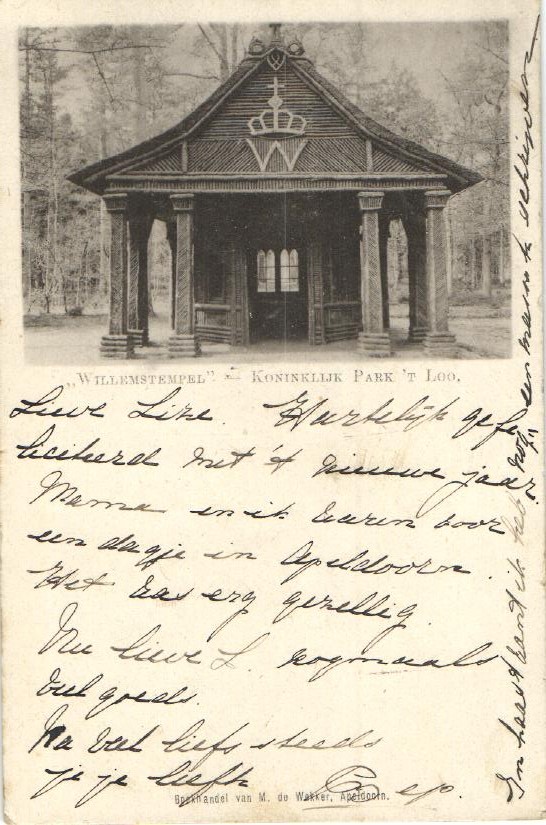 W
„WILLEMSTEMPEL” — KONINKLIJK PARK 'T LOO.
Lieve Lize. Hartelijk gefe
liciteerd met 't nieuwe jaar.
Mama en ik waren voor
een dagje in Apeldoorn.
Het was erg gezellig.
Nu lieve L. nogmaals
veel goeds.
Na veel liefs steeds
je je liefh Bep.
Boekhandel van M. de Wekker, Apeldoorn.
In haast want ik heb nog een massa te schrijven